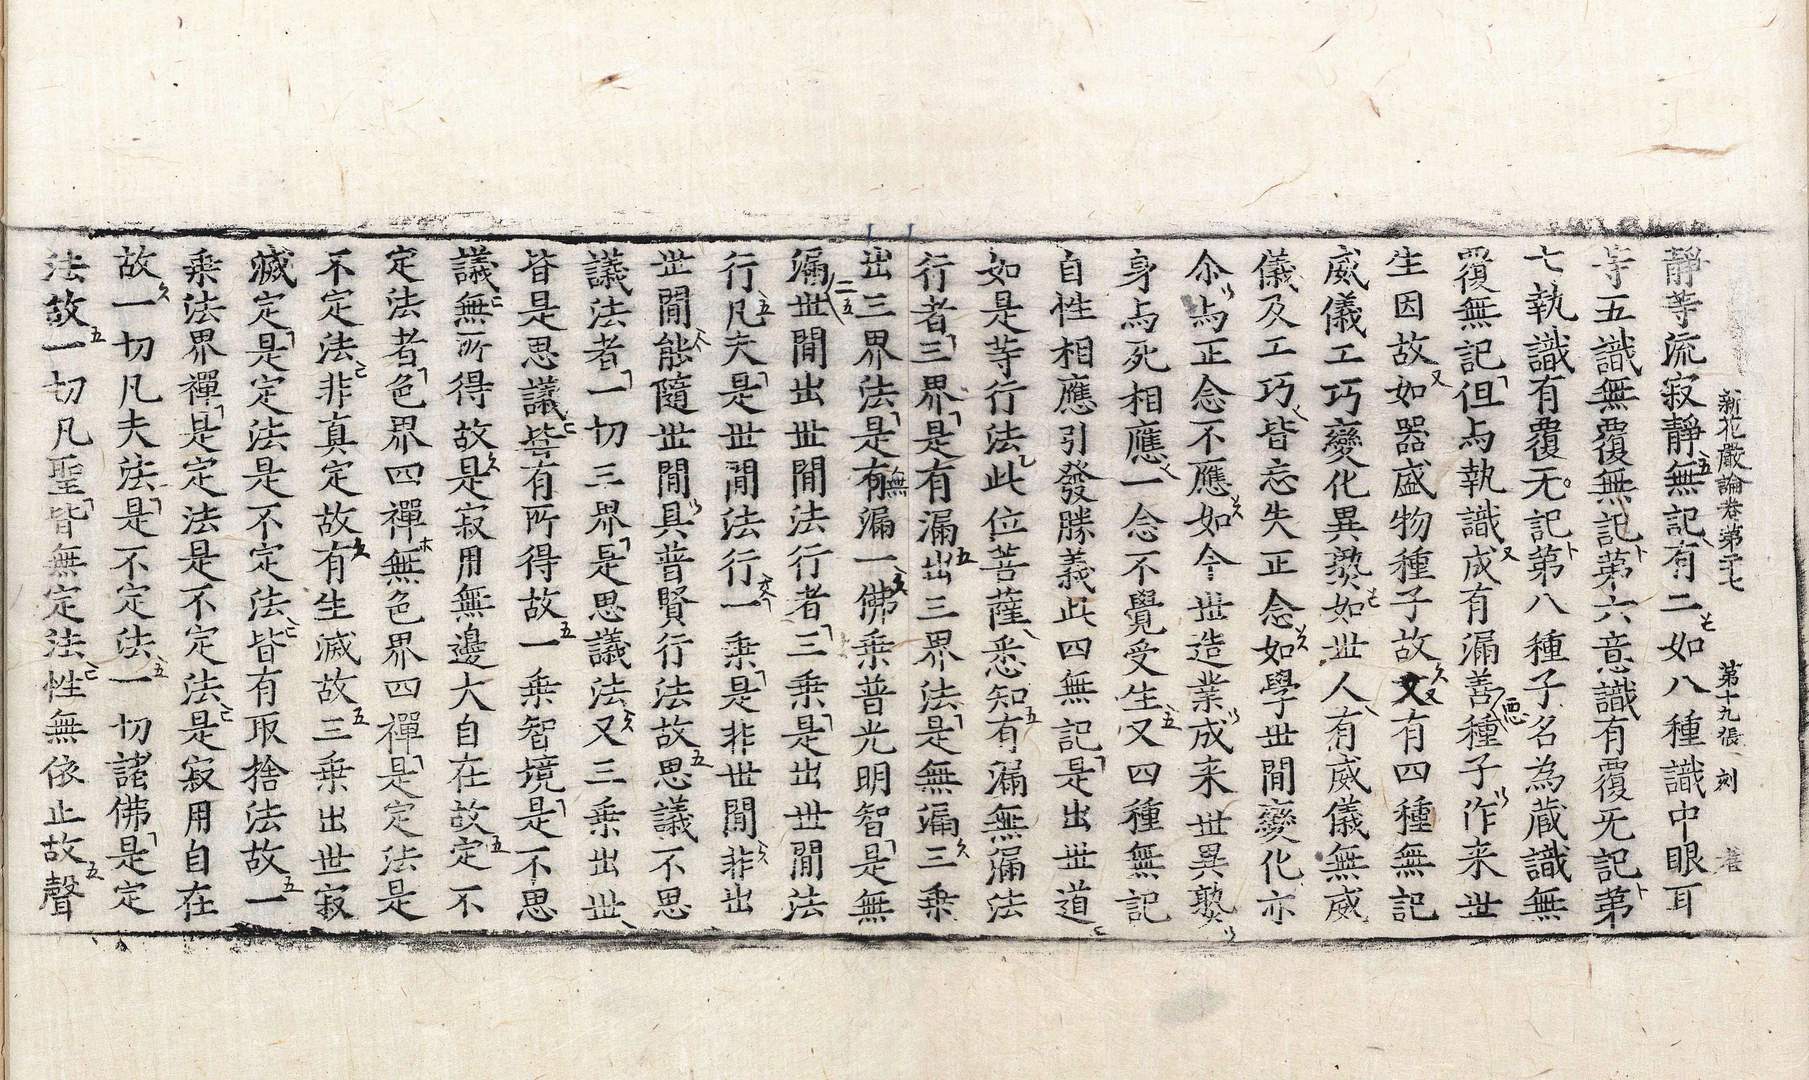 新花嚴論卷第二十七　第十九張　刻
靜等流寂靜無記有二如八種識中眼耳
等五識無覆無記第六意識有覆无記第
七執識有覆无記第八種子名為藏識無
覆無記但与執識成有漏善種子作来世
生因故如器盛物種子故又有四種無記
威儀工巧變化異𤍠如世人有威儀無威
儀及工巧皆忘失正念如學世閒變化亦
尒与正念不應如今世造業成来世異𤍠
身与死相應一念不覺受生又四種無記
自性相應引發勝義此四無記是出世道
如是等行法此位菩薩悉知有漏無漏法
行者三界是有漏出三界法是無漏三乗
出三界法是有漏一佛乗普光明智是無
漏世閒出世閒法行者三乗是出世閒法
行凡夫是世閒法行一乗是非世閒非出
世閒能隨世閒具普賢行法故思議不思
議法者一切三界是思議法又三乗出世
皆是思議皆有所得故一乗智境是不思
議無所得故是寂用無邊大自在故定不
定法者色界四禪無色界四禪是定法是
不定法非真定故有生滅故三乗出世寂
滅定是定法是不定法皆有取捨法故一
乗法界禪是定法是不定法是寂用自在
故一切凡夫法是不定法一切諸佛是定
法故一切凡聖皆無定法性無依止故聲